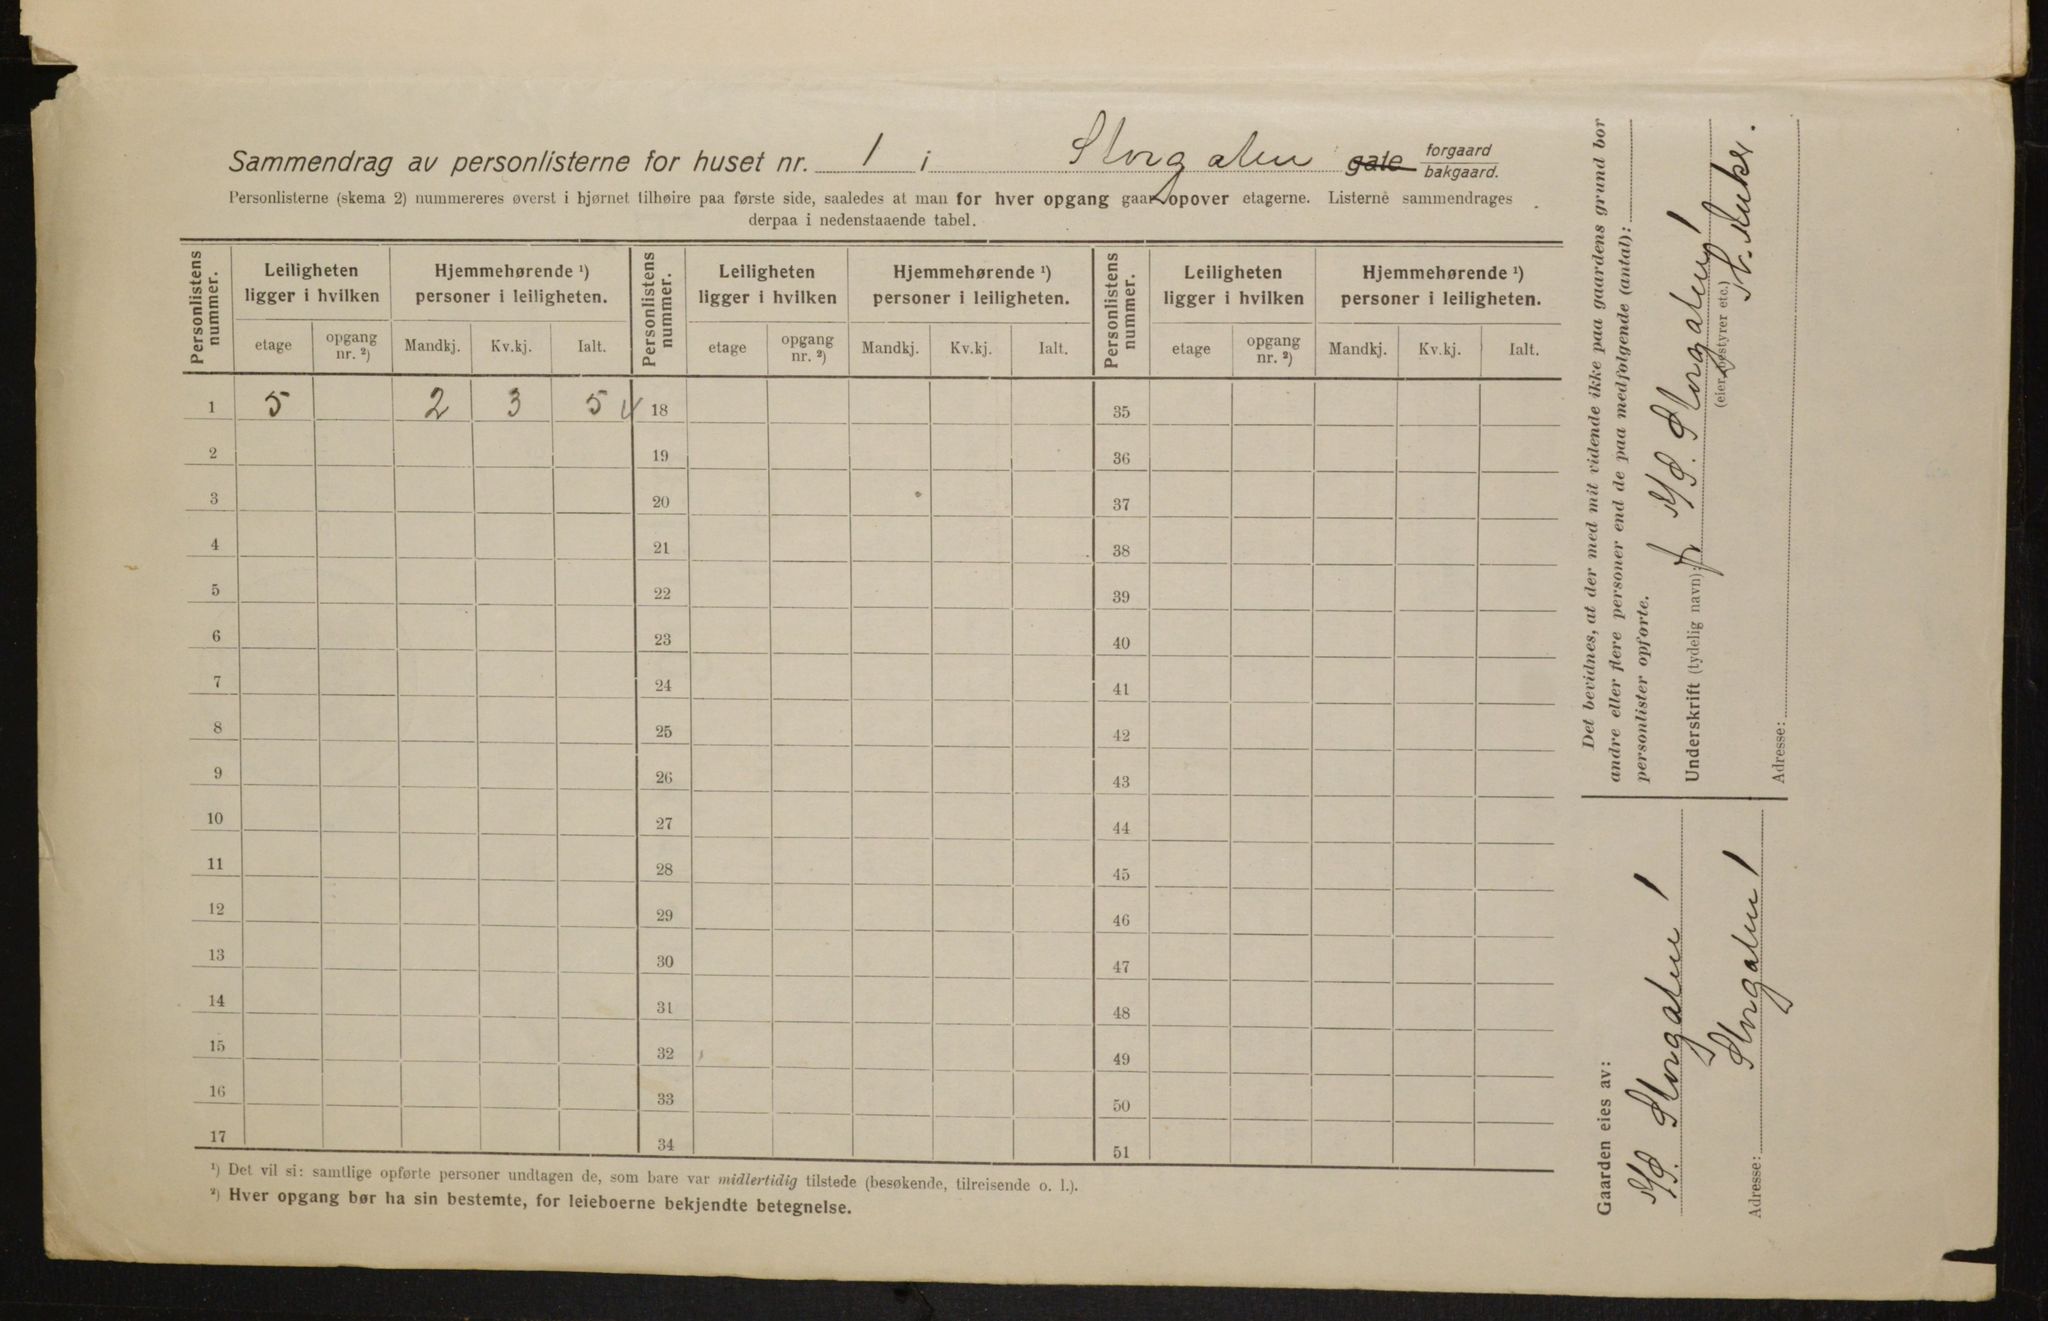 Sammendrag av personlisterne for huset nr. 1 i Storgaten gate forgaard bakgaard.
Personlisterne (skema 2) nummereres øverst i hjørnet tilhøire paa første side, saaledes at man for hver opgang gaar opover etagerne. Listerne sammendrages
derpaa i nedenstaaende tabel.
Personlistens nummer. Leiligheten ligger i hvilken Hjemmehørende ¹) personer i leiligheten. Personlistens nummer. Leiligheten ligger i hvilken Hjemmehørende ¹) personer i leiligheten. Personlistens nummer. Leiligheten ligger i hvilken Hjemmehørende ¹) personer i leiligheten.
etage opgang nr. ²) Mandkj. Kv.kj. Ialt. etage opgang nr. ²) Mandkj. Kv.kj. Ialt. etage opgang nr. ²) Mandkj. Kv.kj. Ialt.
1 5 2 3 5 18 35
2 19 36
3 20 37
4 21 38
5 22 39
6 23 40
7 24 41
8 25 42
9 26 43
10 27 44
11 28 45
12 29 46
13 30 47
14 31 48
15 32 49
16 33 50
17 34 51
¹) Det vil si: samtlige opførte personer undtagen de, som bare var midlertidig tilstede (besøkende, tilreisende o. l.).
²) Hver opgang bør ha sin bestemte, for leieboerne bekjendte betegnelse.
Det bevidnes, at der med mit vidende ikke paa gaardens grund bor
andre eller flere personer end de paa medfølgende (antal):
personlister opførte.
Underskrift (tydelig navn): Storgaten 1
(eier, bestyrer etc.)
Adresse:
Gaarden eies av:
Storgaten 1
Adresse: Storgaten 1